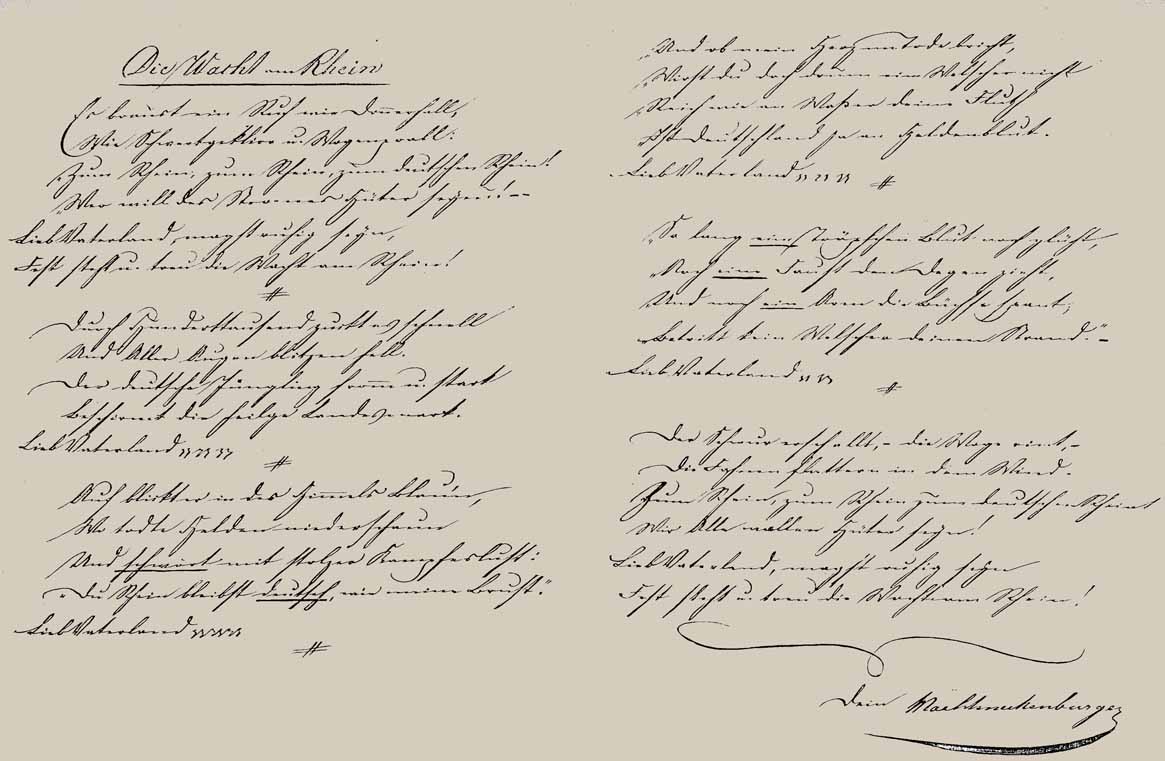 Die Wacht am Rhein
Es braust ein Ruf wie Donnerhall,
Wie Schwertgeklirr u. Wogenprall:
„Zum Rhein, zum Rhein, zum deutschen Rhein!
„Wer will des Stromes Hüter seyn!! –
Lieb Vaterland, magst ruhig seyn,
Fest steht u. treu die Wacht am Rhein!
Durch Hunderttausend zuckt es schnell
Und Aller Augen blitzen hell.
Der deutsche Jüngling fromm u. stark
Beschirmt die heilge Landesmark.
Lieb Vaterland " " "
Auf blickt er in des Himmels Blau'n,
Wo todte Helden niederschaun
Und schwört mit stolzer Kampfeslust:
„Du Rhein bleibst deutsch, wie meine Brust."
Lieb Vaterland " " "
„Und ob mein Herz im Tode bricht,
„Wirst du doch drum ein Welscher nicht
„Reich wie an Waßer deine Fluth
„Ist Deutschland ja an Heldenblut.
Lieb Vaterland " " "
„So lang ein Tröpfchen Blut noch glüht,
„Noch eine Faust den Degen zieht,
„Und noch ein Arm die Büchse spant,
„Betritt kein Welscher deinen Strand." –
Lieb Vaterland " "
Der Schwur erschallt, – die Woge rint, –
Die Fahnen flattern in dem Wind.
Zum Rhein, zum Rhein zum deutschen Rhein!
Wir Alle wollen Hüter seyn!
Lieb Vaterland, magst ruhig seyn
Fest steht u. treu die Wacht am Rhein!
Dein MaxSchneckenburger